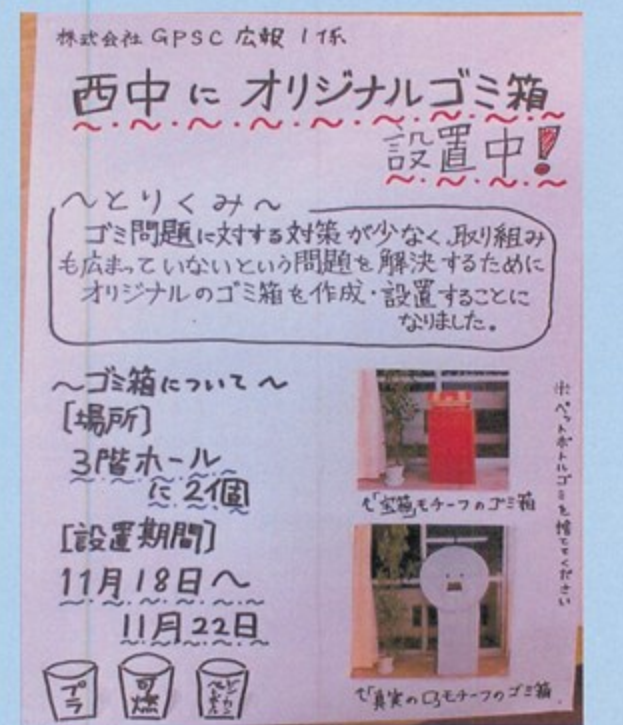 株式会社 GPSC 広報1係
西中に オリジナルゴミ箱
設置中!
〜とりくみ〜
ゴミ問題に対する対策が少なく、取り組み
も広まっていないという問題を解決するために
オリジナルのゴミ箱を作成・設置することに
なりました。
〜ゴミ箱について〜
[場所]
3階ホール
に2個
[設置期間]
11月18日〜
11月22日
↑「宝箱」モチーフのゴミ箱
↑「真実の口」モチーフのゴミ箱
※ペットボトルゴミを捨ててください
プラ
可燃
ビン・カン
ペットボトル